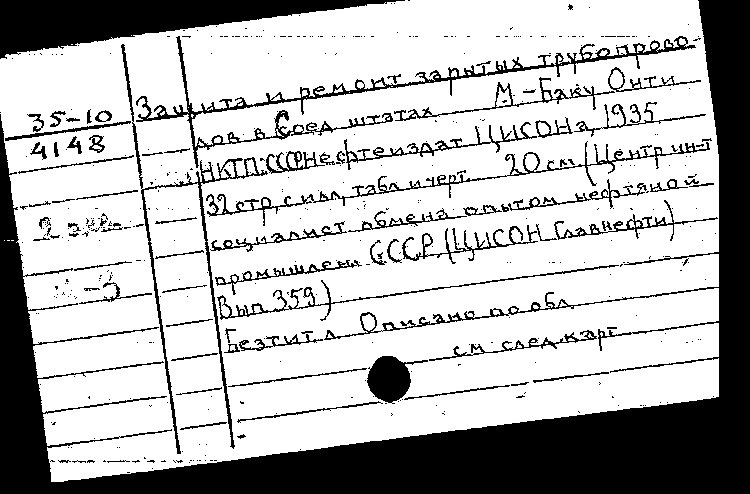 Защита и ремонт зарытых трубопрово-
35-10
4148
дов в Соед штатах М.-Баку Онти
НКТП:СССР Нефтеиздат ЦИСОНа, 1935
32 стр, с илл, табл и черт. 20 см (Центр ин-т
2 экз.
социалист обмена опытом нефтяной
промышлен. СССР. (ЦИСОН Главнефти)
-3
Вып 359)
Без тит. л Описано по обл
см след. карт